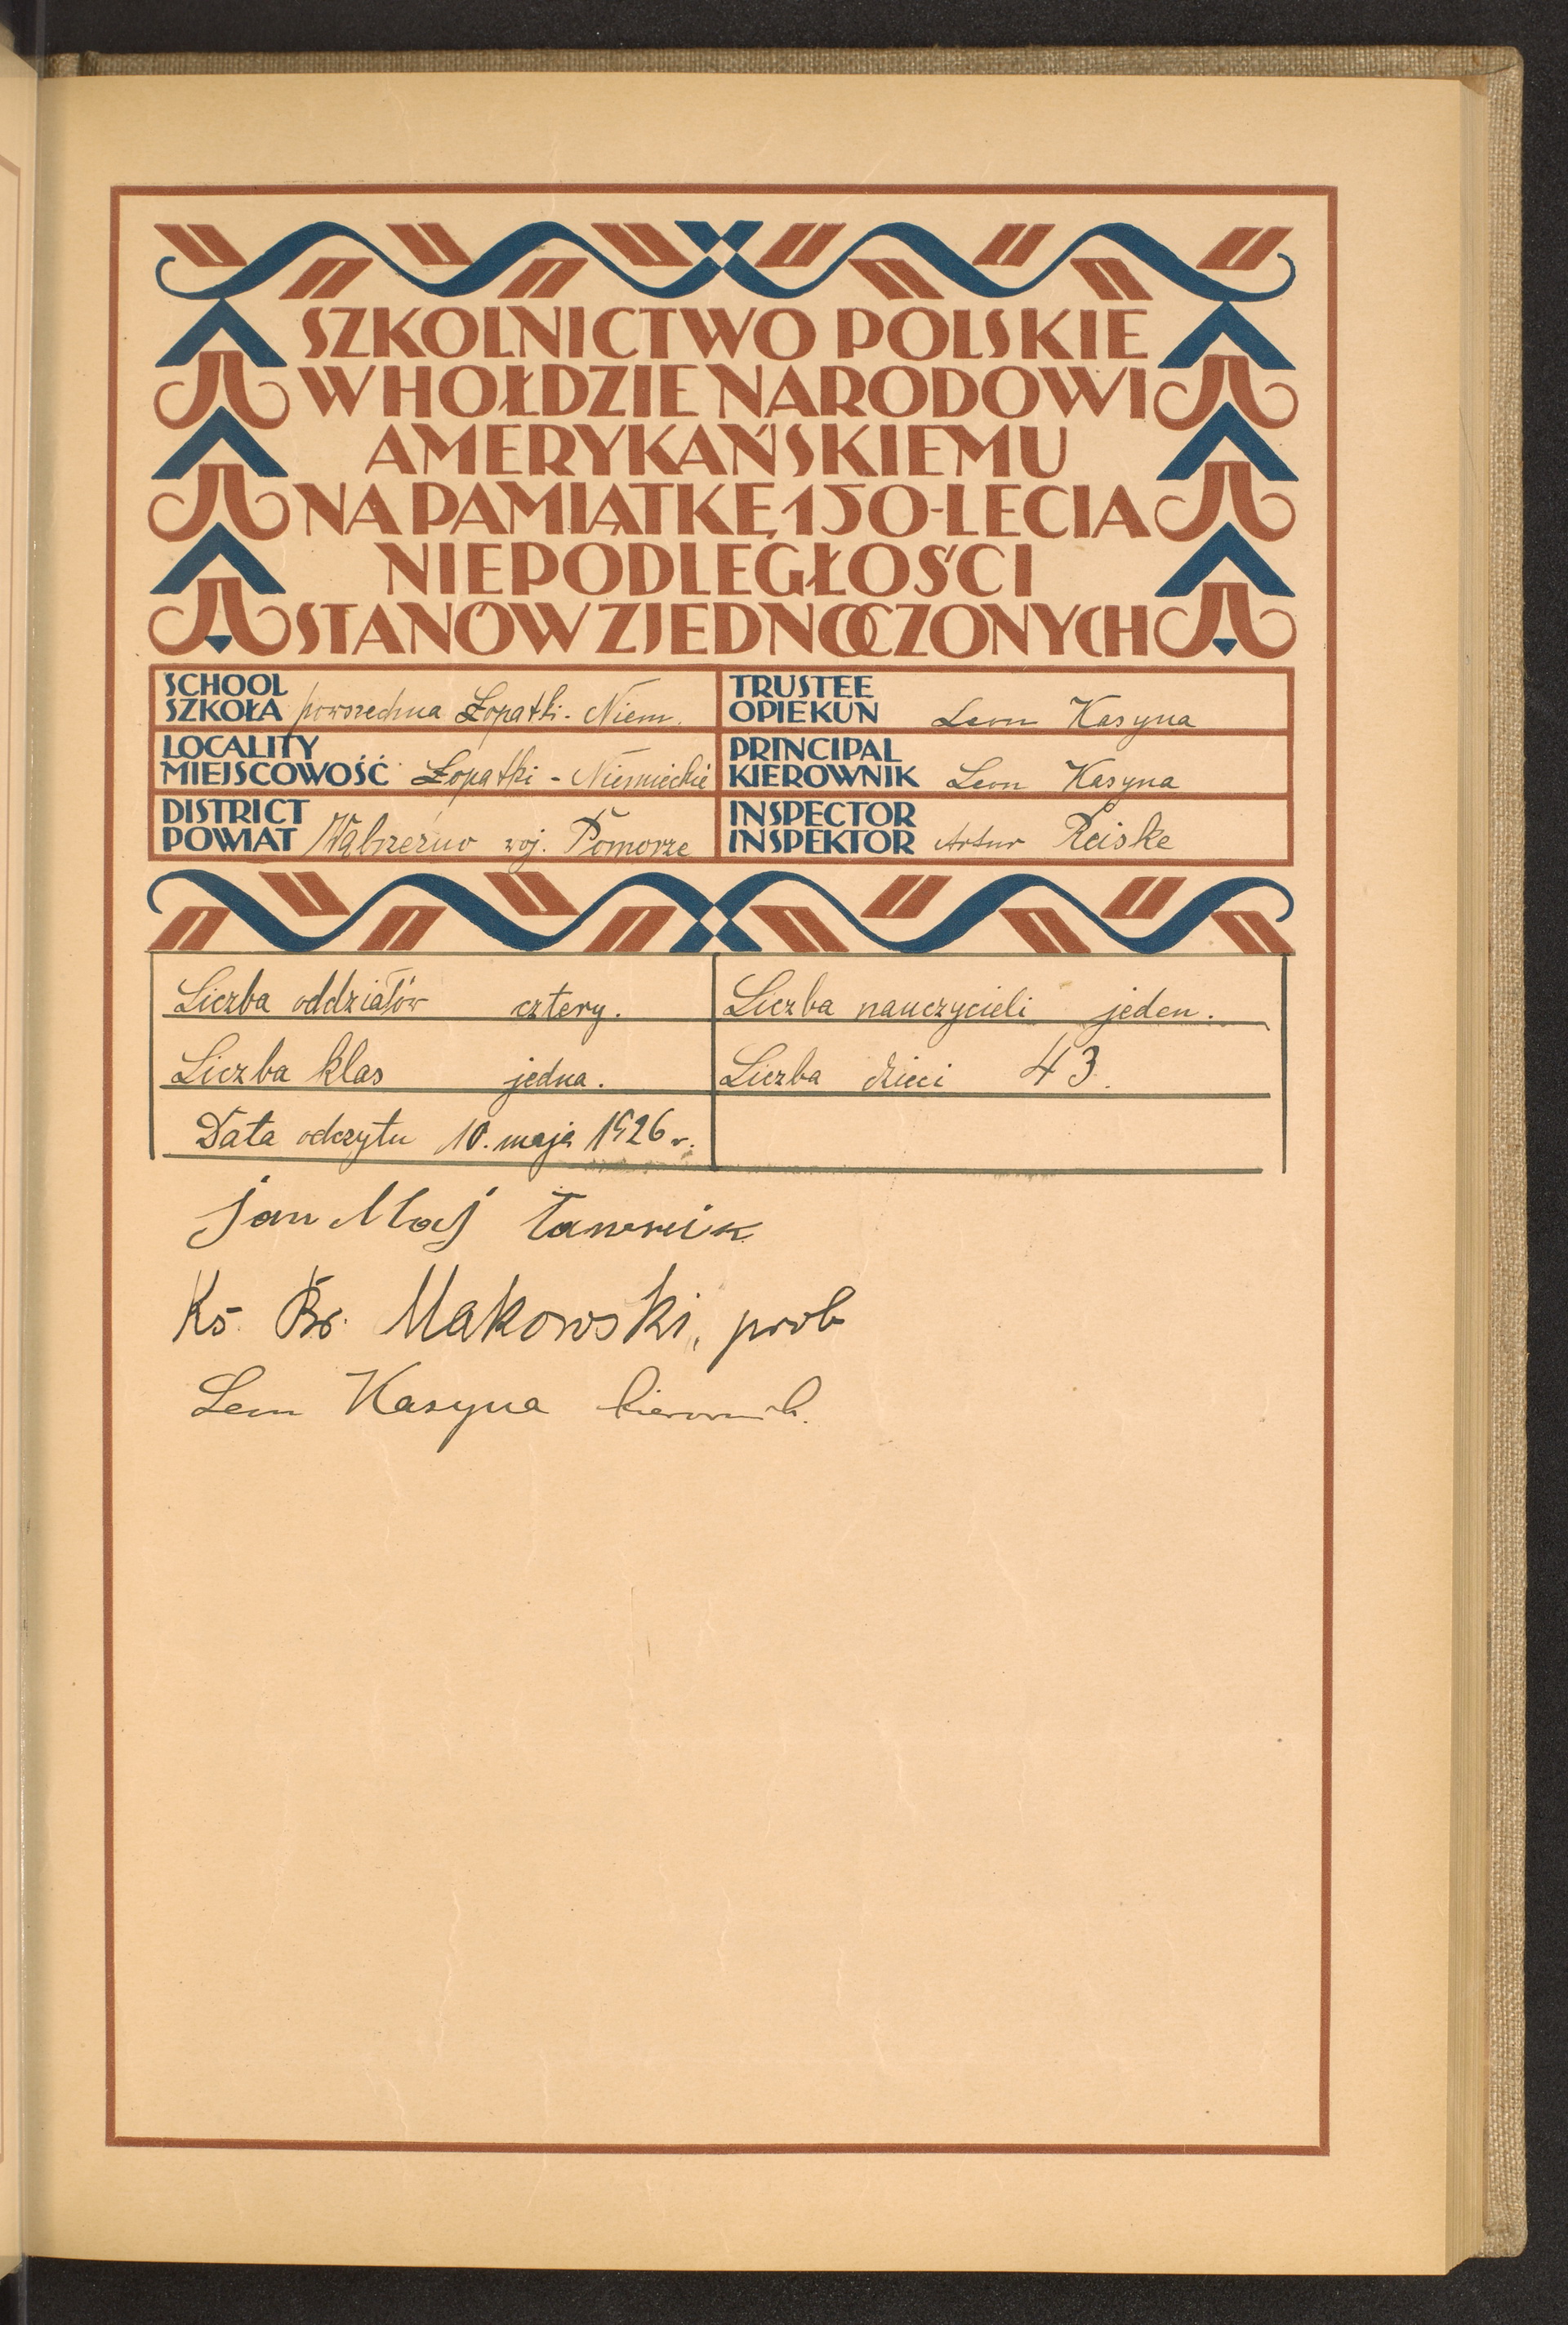 SZKOLNICTWO POLSKIE
W HOŁDZIE NARODOWI
AMERYKAŃSKIEMU
NA PAMIĄTKĘ 150-LECIA
NIEPODLEGŁOŚCI
STANÓW ZJEDNOCZONYCH
SCHOOL
SZKOŁA powszechna Łopatki - Niem.
TRUSTEE
OPIEKUN Leon Kasyna
LOCALITY
MIEJSCOWOŚĆ Łopatki - Niemieckie
PRINCIPAL
KIEROWNIK Leon Kasyna
DISTRICT
POWIAT Wąbrzeźno woj. Pomorze
INSPECTOR
INSPEKTOR Artur Reiske
Liczba oddziałów cztery.
Liczba nauczycieli jeden.
Liczba klas jedna.
Liczba dzieci 43.
Data odczytu 10. maja 1926 r.
Jan Maj ławnik
Ks. Br. Makowski, prob
Leon Kasyna kierownik.